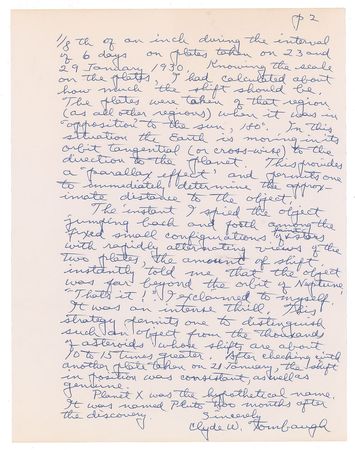 p 2
1/8 th of an inch during the interval
of 6 days on plates taken on 23 and
29 January 1930 Knowing the scale
on the plates, I had calculated about
how much the shift should be.
The plates were taken of that region
(as all other regions) when it was in
"opposition" to the sun, 180°. In this
situation the Earth is moving in its
orbit tangential (or cross-wise) to the
direction to the planet. This provides
a "parallax effect" and permits one
to immediately determine the approx-
imate distance to the object.
The instant I spied the object
jumping back and forth among the
fixed small configurations of stars
with rapidly alternating views of the
two plates, the amount of shift
instantly told me that the object
was far beyond the orbit of Neptune.
"That's it!" I exclaimed to myself.
It was an intense thrill. This
strategy permits one to distinguish
such an object from the thousands
of asteroids whose shifts are about
10 to 15 times greater. After checking with
another plate taken on 21 January, the shift
in position was consistent, as well as
genuine.
Planet X was the hypothetical name.
It was named Pluto months after
the discovery Sincerely
Clyde W. Tombaugh